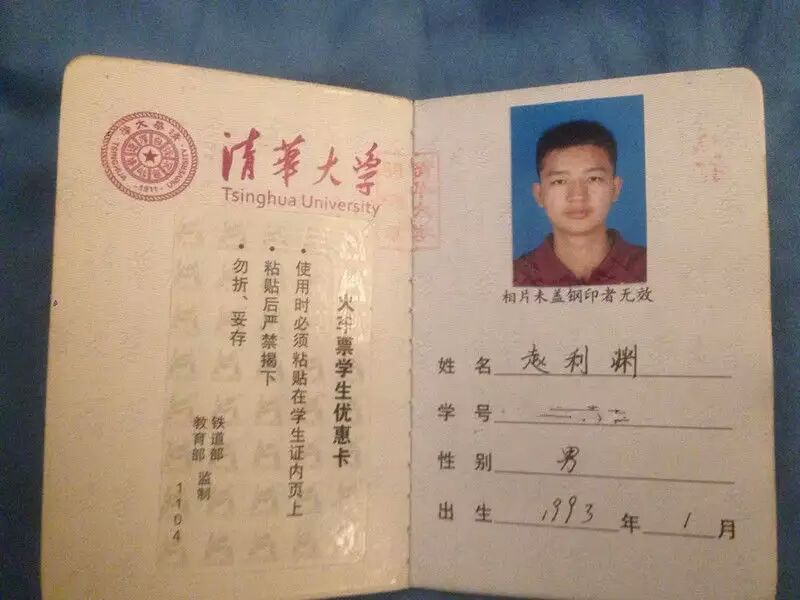 清華大学
Tsinghua University
TSINGHUA UNIVERSITY
-1911-
火车票学生优惠卡
• 使用时必须粘贴在学生证内页上
• 粘贴后严禁揭下
• 勿折、妥存
铁道部
教育部 监制
1104
相片未盖钢印者无效
姓 名 赵利渊
学 号
性 别 男
出 生 1993 年 1 月